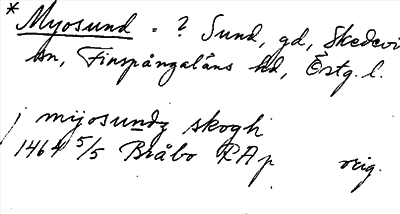 * Myosund = ? Sund, gd, Skedevi
sn, Finspångaläns hd, Östg. l.
j mijosundz skogh
1464 5/5 Bråbo RAp orig.